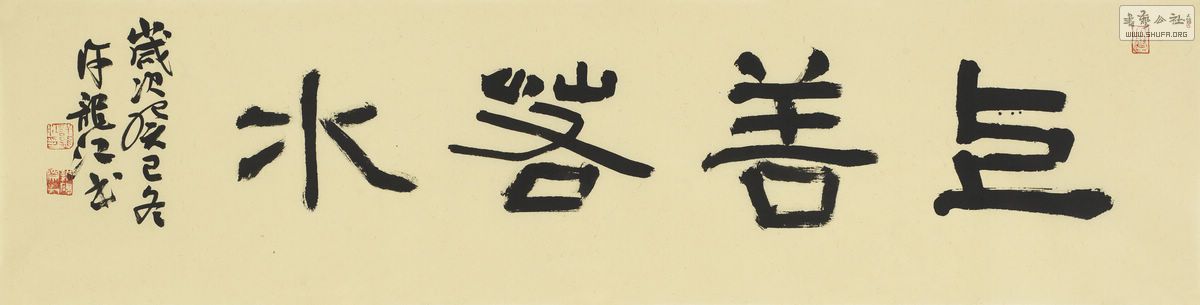 上善若水
歲次癸巳冬
許龍江書
書藝公社
WWW.SHUFA.ORG